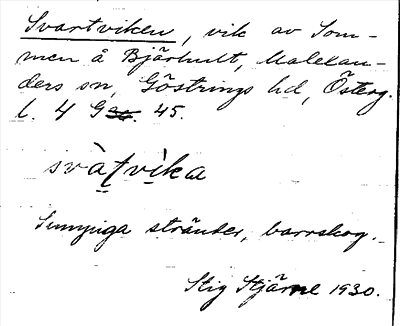 Svartviken, vik av Som-
men å Bjärhult, Malexan-
ders sn, Göstrings hd, Österg.
l. 4 G 45.
svàt̠vi̠ka
Sumpiga stränder, barrskog.
Stig Stjärne 1930.